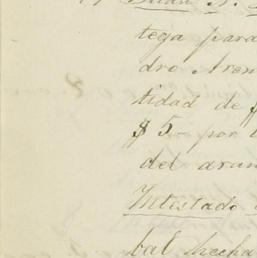 Juan N.
tega para
dro Aren
tidad de $
$5- por l
del aran
Intestado
bal hecha